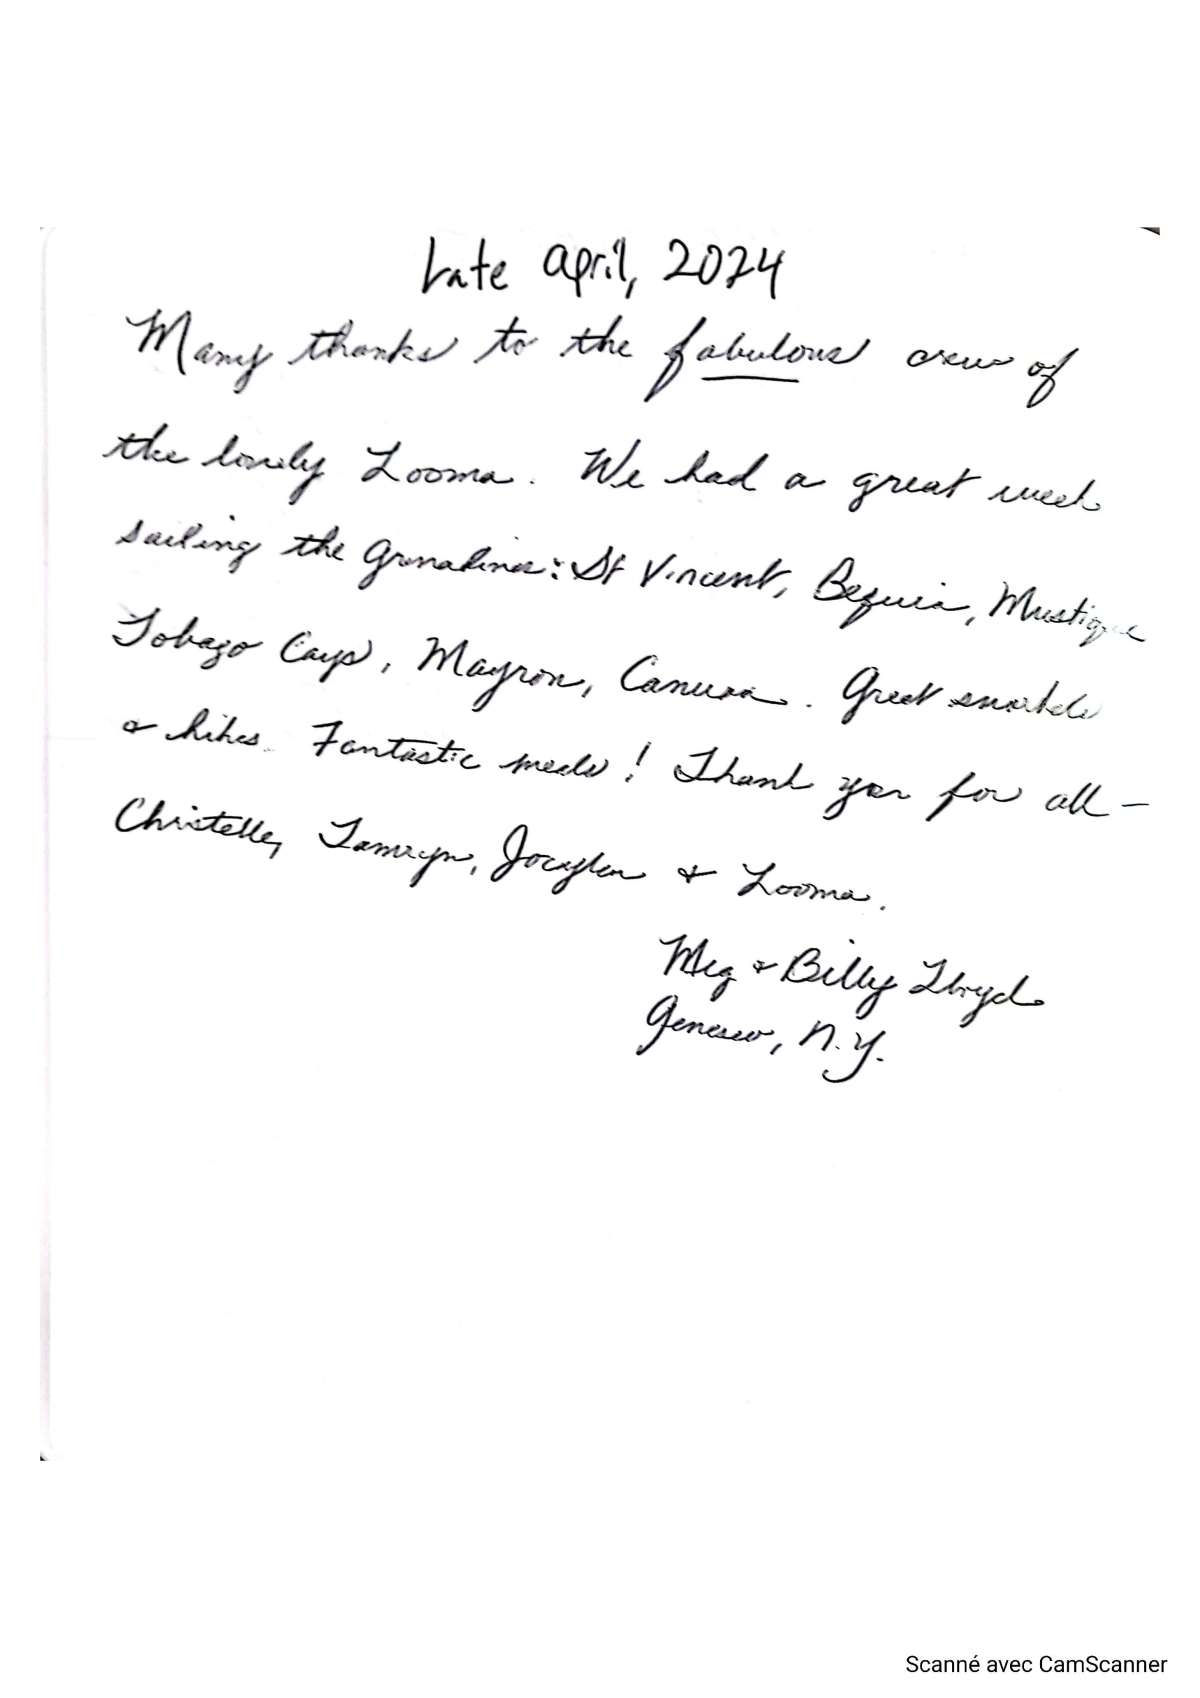 Late April, 2024
Many thanks to the fabulous crew of
the lovely Looma. We had a great week
sailing the Grenadines: St Vincent, Bequia, Mustique
Tobago Cays, Mayron, Canuaa. Great snorkels
& hikes. Fantastic meals! Thank you for all —
Christelle, Tamryn, & Looma.
Meg & Billy Lloyd
Geneseo, N.Y.
Scanné avec CamScanner